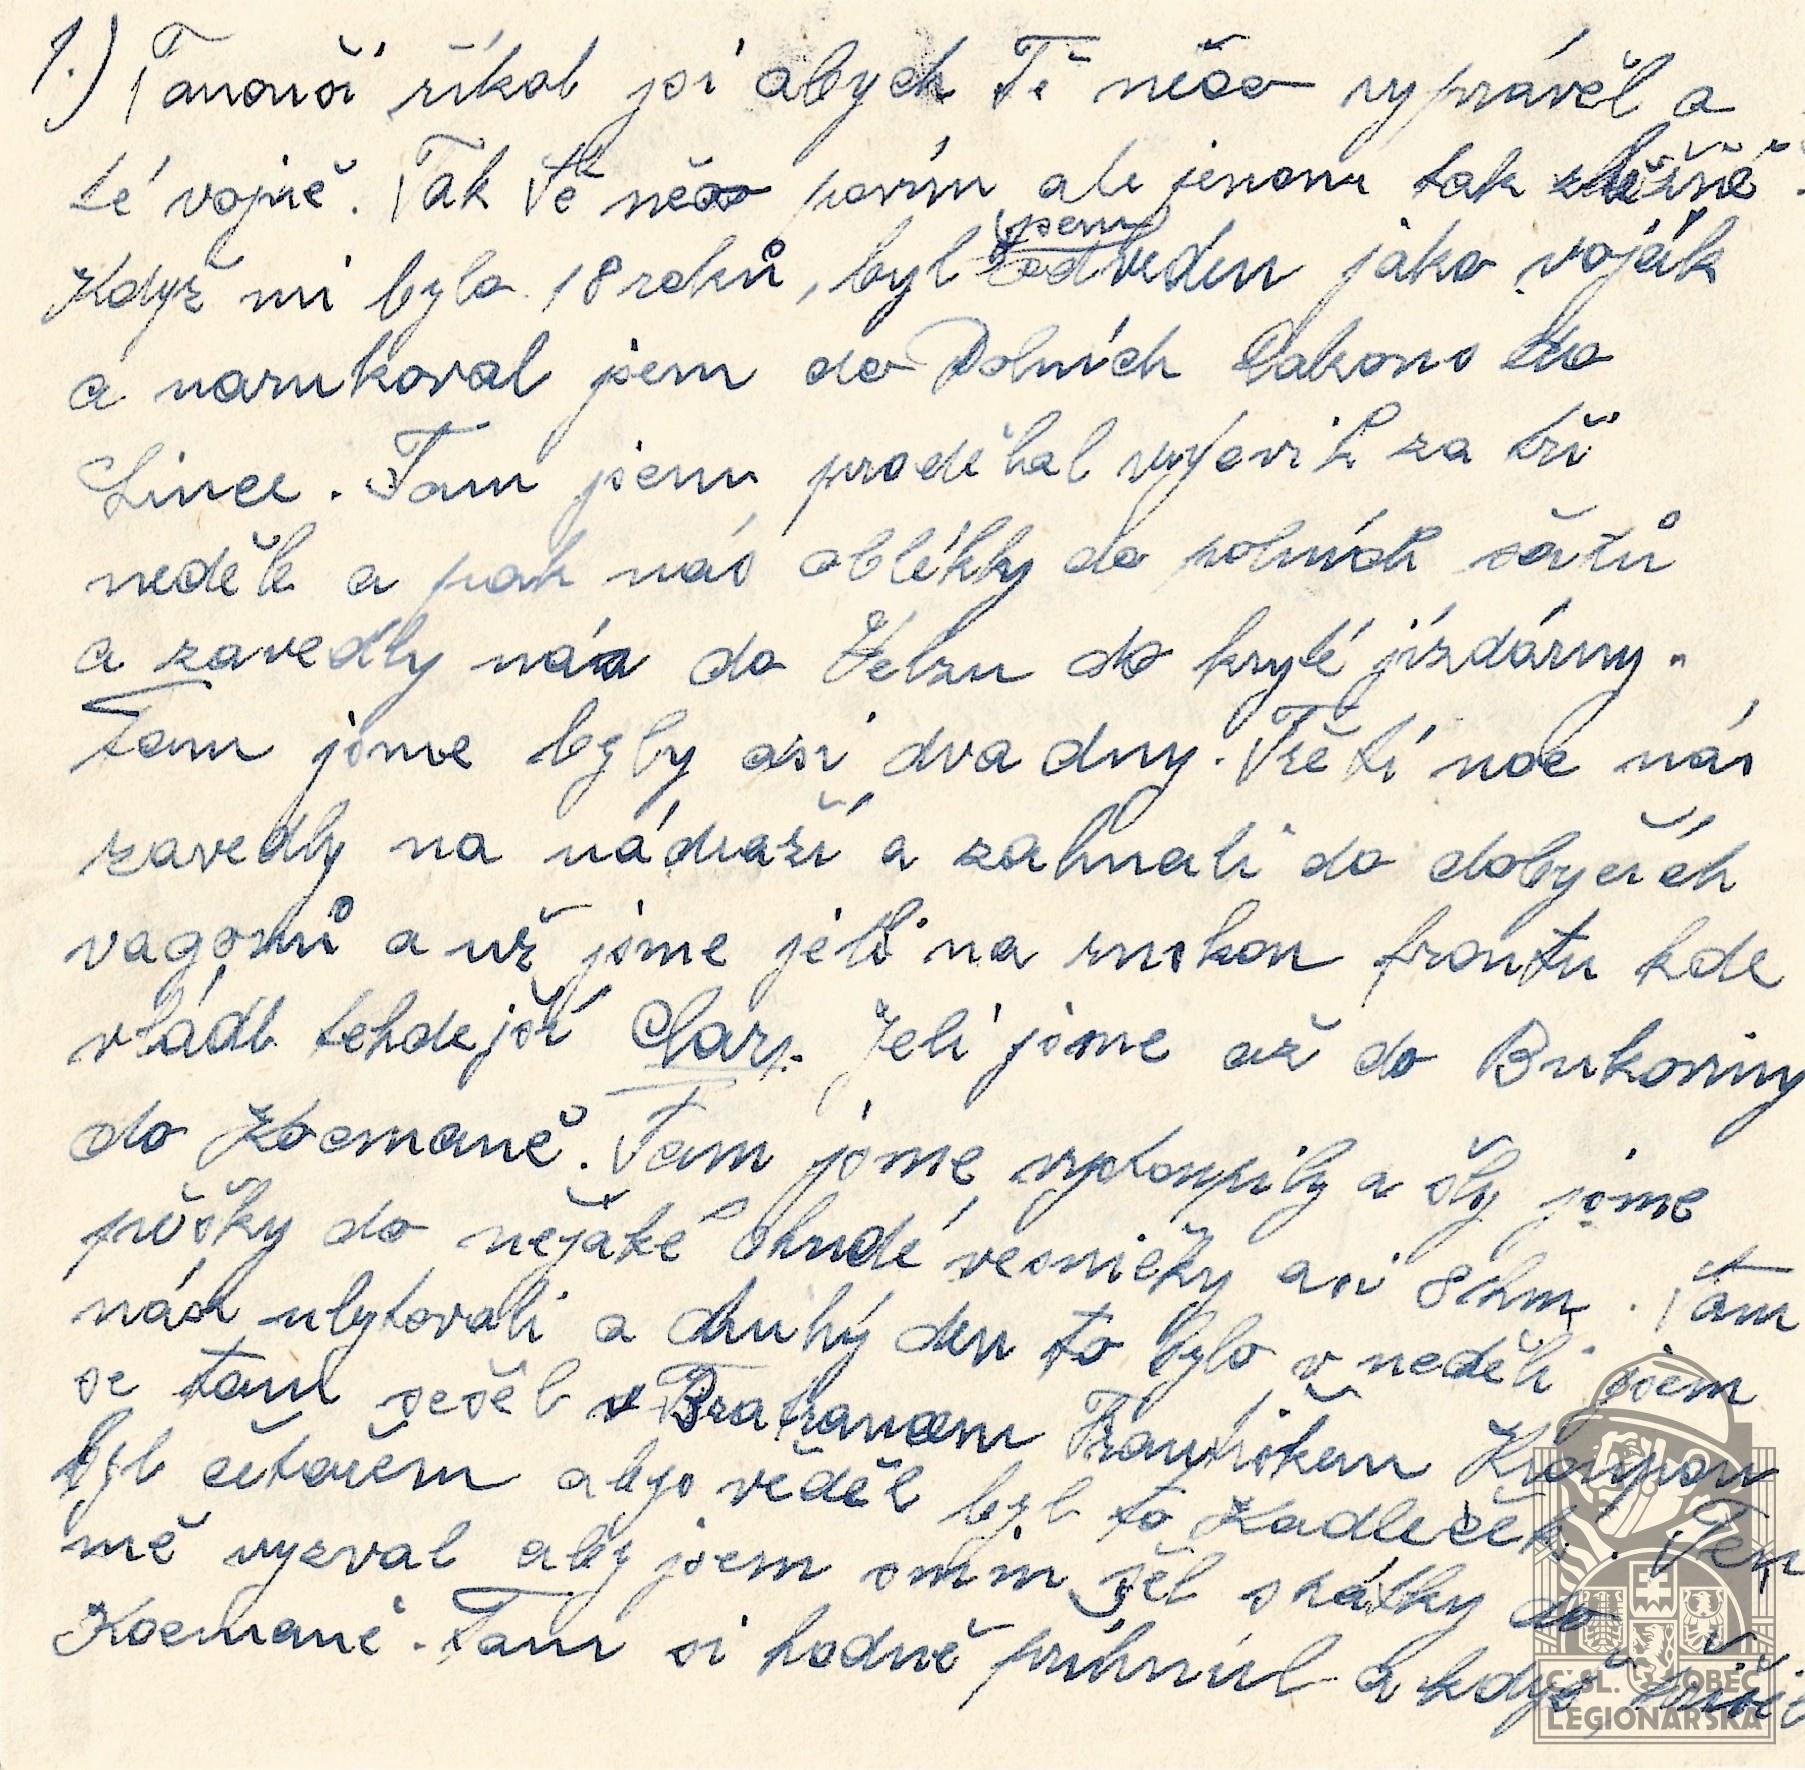 1.) Tanouši říkal jsi abych Ti něco vyprávěl o
té vojně. Tak Tě něco povím ale jenom tak zběžně.
Když mi bylo 18 roků, byl jsem odveden jako voják
a narukoval jsem do Dolních Rakous do
Lince. Tam jsem prodělal výcvik za tři
neděle a pak nás oblékly do polních šátů
a zavedly nás do Velzu do kryté jízdárny.
Tam jsme byly asi dva dny. Třetí noc nás
zavedly na nádraží a zahnali do dobyčích
vagonů a už jsme jeli na ruskou frontu kde
vládl tehdejší Car. Jeli jsme až do Bukoviny
do Kocmaně. Tam jsme vystoupily a šly jsme
pěšky do nějaké chudé vesničky asi 8 km. Tam
nás ubytovali a druhý den to bylo v neděli jsem
se tam sešel s Bratranem Františkem Kroupou
byl četařem abys věděl byl to Kadleček. Ten
mě vyzval aby jsem s ním šel zkátky do
Kocmaně. Tam si hodně přihnul a když
ČSL. OBEC
LEGIONÁŘSKÁ